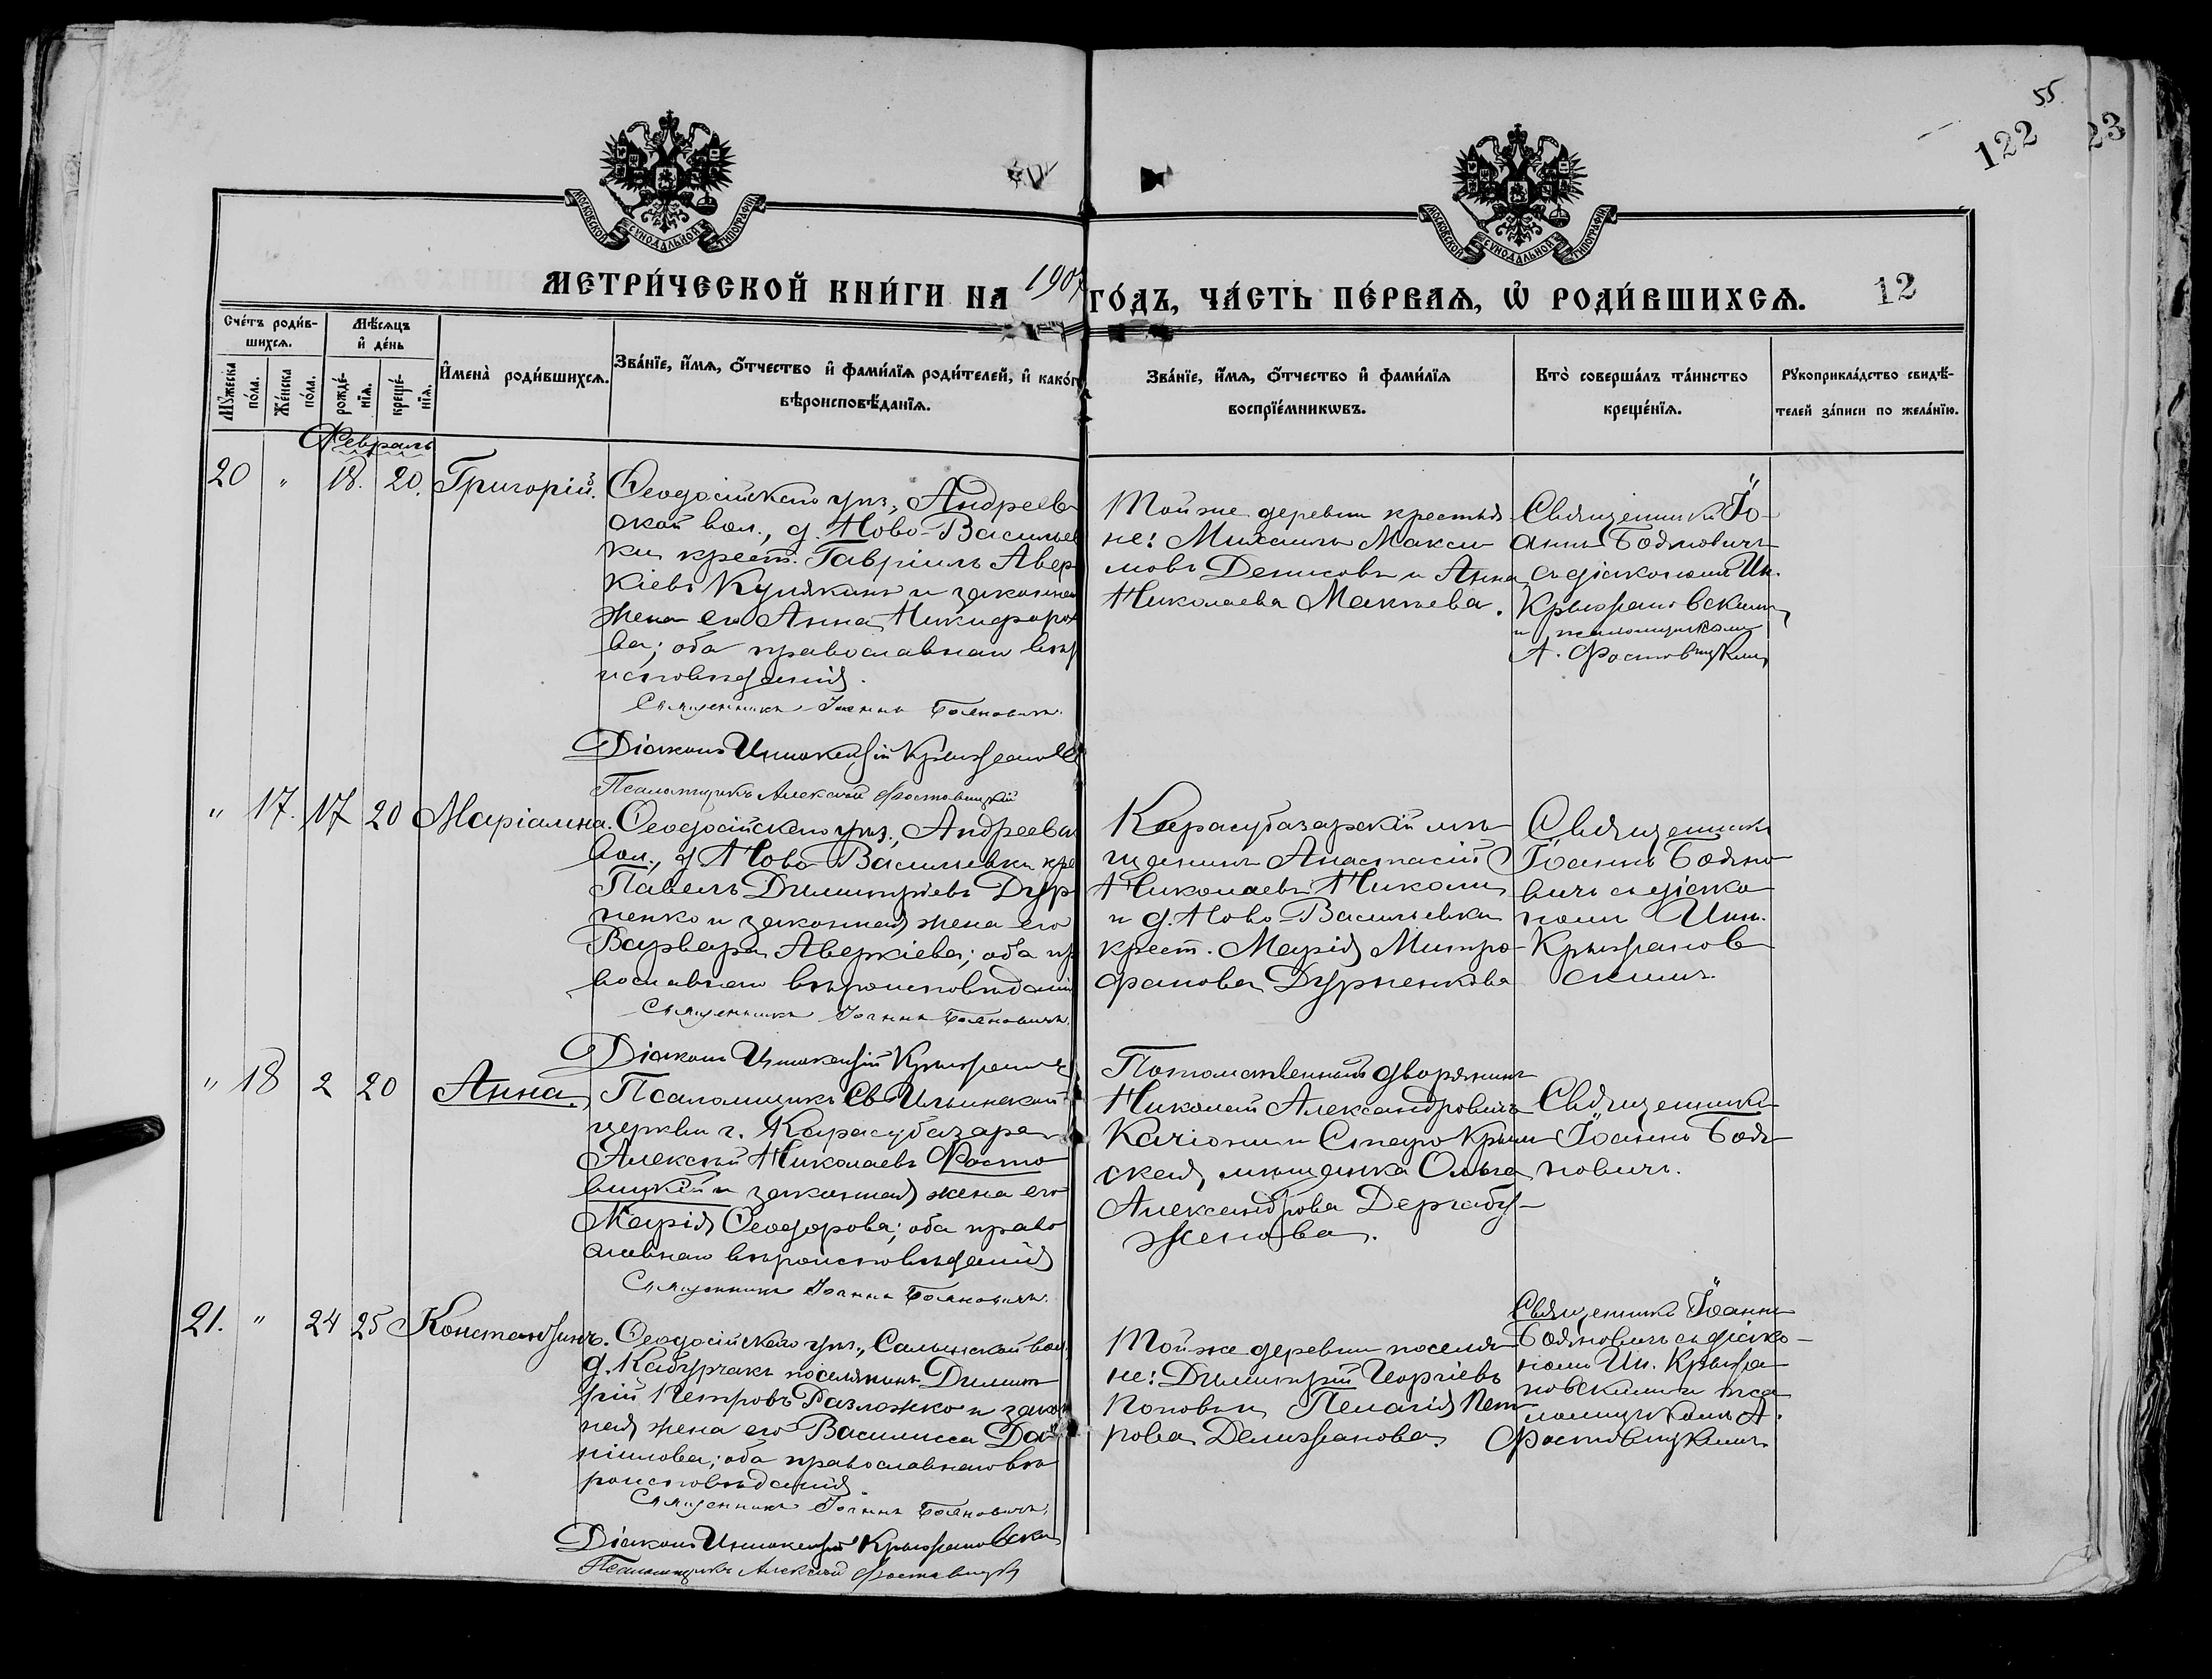 55
122
23
МОСКОВСКОЙ СУНОДАЛЬНОЙ ТИПОГРАФІИ
МОСКОВСКОЙ СУНОДАЛЬНОЙ ТИПОГРАФІИ
МЕТРИ́ЧЕСКОЙ КНИ́ГИ НА 1907 ГО́ДЪ, ЧА́СТЬ ПЕ́РВАѦ, Ѽ РОДИ́ВШИХСѦ. 12
Сче́тъ роди́в-
шихсѧ.
Мꙋ́жеска по́ла.
Же́нска по́ла.
Мѣ́сѧцъ и҆ де́нь
рожде́-
нїѧ.
креще́-
нїѧ.
И҆мена̀ роди́вшихсѧ.
Зва́нїе, и҆́мѧ, ѻ҆́тчество и҆ фами́лїѧ роди́телей, и҆ како́гѡ
вѣроисповѣ́данїѧ.
Зва́нїе, и҆́мѧ, ѻ҆́тчество и҆ фами́лїѧ
воспрїе́мникѡвъ.
Кто̀ соверша́лъ та́инство
креще́нїѧ.
Рꙋкоприкла́дство свидѣ́-
телей за́писи по жела́нїю.
Февраль
20 " 18. 20. Григорій.
Ѳеодосійскаго уѣз., Андреев
ской вол., д. Ново-Васильев
ки крест. Гавріилъ Авер
кіевъ Кулякинъ и законная
жена его Анна Никифоро
ва; оба православнаго вѣр
исповѣданія.
Священникъ Іоаннъ Бояновичъ.
Діаконъ Иннокентій Крыжанов
Псаломщикъ Алексѣй Фостовицкій
Той же деревни крестья-
не: Михаилъ Макси
мовъ Денисовъ и Анна
Николаева Макѣева.
Священникъ Іо-
аннъ Бояновичъ
съ діакономъ Ин.
Крыжановскимъ
и псаломщикомъ
А. Фостовицкимъ
" 17. 17 20 Маріамна.
Ѳеодосійскаго уѣз., Андреевс
вол., д. Ново-Васильевки кре
Павелъ Димитріевъ Дур
ненко и законная жена его
Варвара Аверкіева; оба пр
вославнаго вѣроисповѣданія
Священникъ Іоаннъ Бояновичъ.
Діаконъ Иннокентій Крыжанов
Карасубазарскій мѣ-
щанинъ Анастасій
Николаевъ Николи
и д. Ново-Васильевки
крест. Марія Митро-
фанова Дурненкова
Священникъ
Іоаннъ Бояно-
вичъ съ діако-
номъ Инн.
Крыжанов-
скимъ.
" 18 2 20 Анна.
Псаломщикъ Св Ильинской
церкви г. Карасубазара
Алексѣй Николаевъ Фосто
вицкій и законная жена его
Марія Ѳеодорова; оба право
славнаго вѣроисповѣданія
Священникъ Іоаннъ Бояновичъ.
Потомственный дворянинъ
Николай Александровичъ
Качіони и Старо Крым
ская мѣщанка Ольга
Александрова Дергабу-
женова.
Священникъ
Іоаннъ Боя-
новичъ.
21. " 24 25 Константинъ.
Ѳеодосійскаго уѣз., Салынской вол.,
д. Кабурчакъ поселянинъ Димит
рій Петровъ Разложко и закон
ная жена его Василисса Да
ніилова; оба православнаго вѣ
роисповѣданія.
Священникъ Іоаннъ Бояновичъ.
Діаконъ Иннокентій Крыжановскі
Псаломщикъ Алексѣй Фостовицкі
Той же деревни поселя-
не: Димитрій Георгіевъ
Поповъ и Пелагія Пет-
рова Делижанова.
Священникъ Іоаннъ
Бояновичъ съ діако-
номъ Ин. Крыжа-
новскимъ и пса
ломщикомъ А.
Фостовицкимъ.